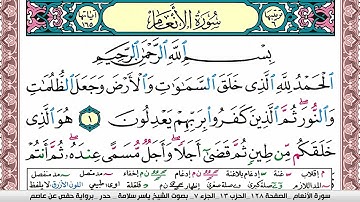 سُورَةُ الأَنْعَامِ
بِسْمِ اللَّهِ الرَّحْمَٰنِ الرَّحِيمِ
الْحَمْدُ لِلَّهِ الَّذِي خَلَقَ السَّمَاوَاتِ وَالْأَرْضَ وَجَعَلَ الظُّلُمَاتِ
وَالنُّورَ ثُمَّ الَّذِينَ كَفَرُوا بِرَبِّهِمْ يَعْدِلُونَ ۝١ هُوَ الَّذِي
خَلَقَكُمْ مِنْ طِينٍ ثُمَّ قَضَىٰ أَجَلًا وَأَجَلٌ مُسَمًّى عِنْدَهُ ثُمَّ أَنْتُمْ
سورة الأنعام . الصفحة ١٢٨ . الحزب ١٣ . الجزء ٧ . بصوت الشيخ ياسر سلامة . حدر . برواية حفص عن عاصم